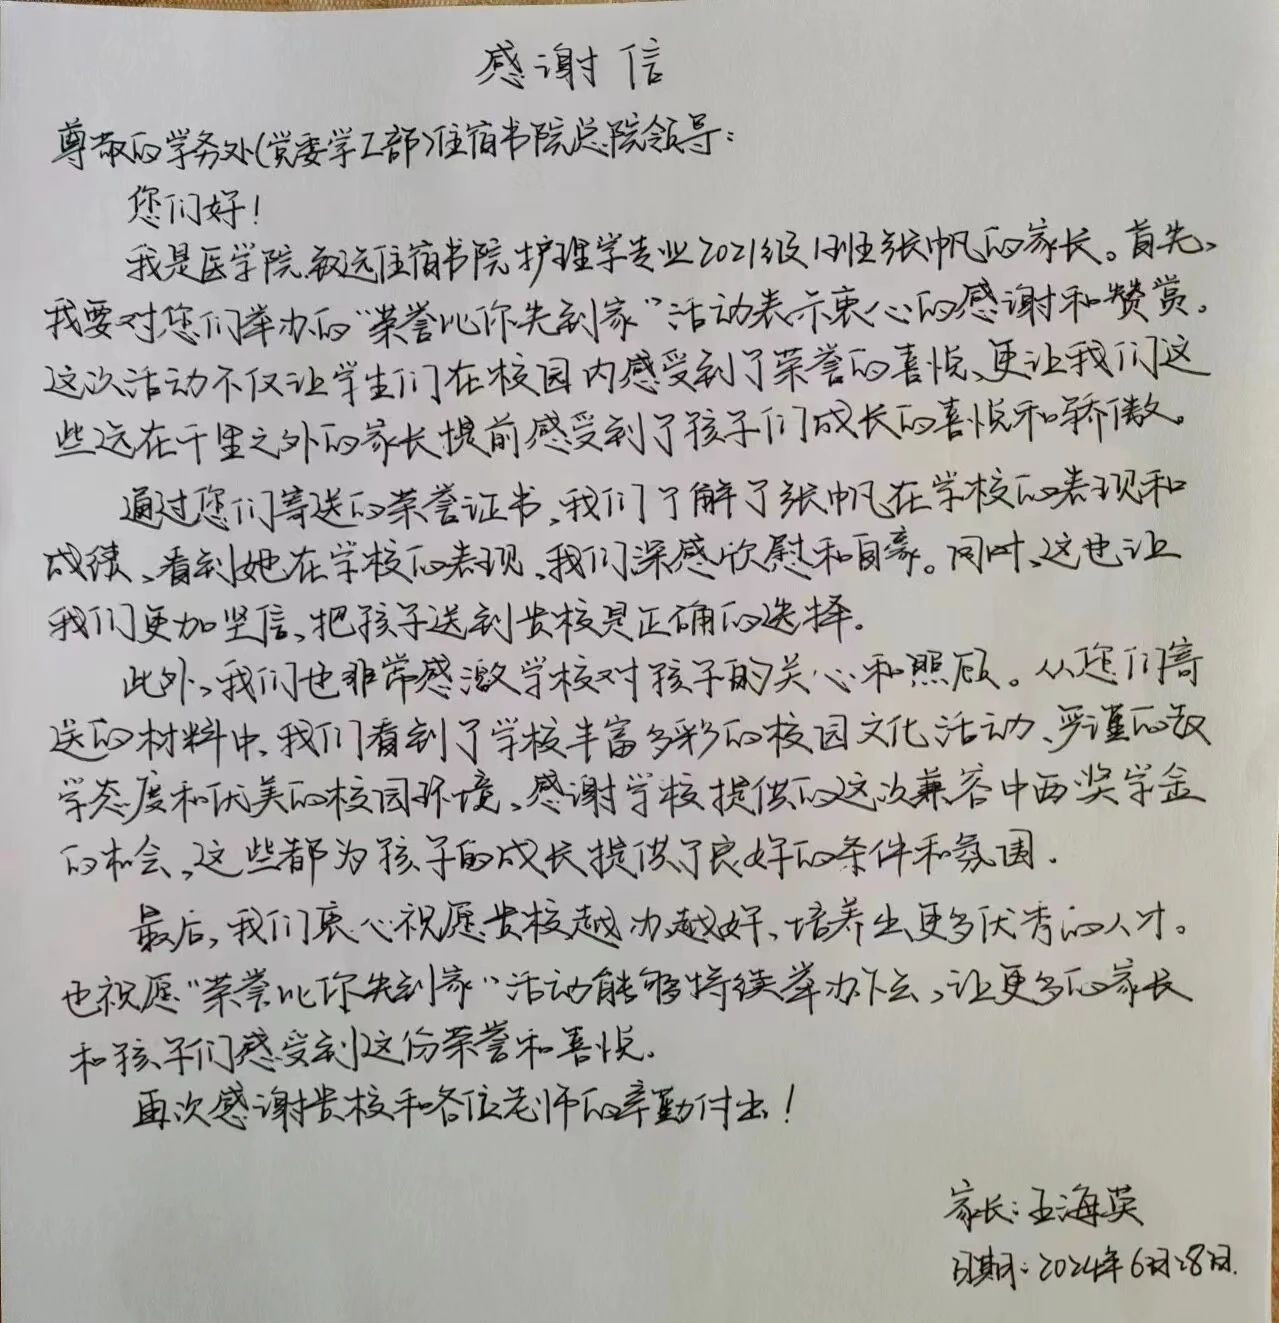 感谢信
尊敬的学务处(党委学工部)住宿书院总院领导:
您们好!
我是医学院.敏远住宿书院护理学专业2021级1班张帆的家长。首先,
我要对您们举办的“荣誉比你先到家”活动表示衷心的感谢和赞赏。
这次活动不仅让学生们在校园内感受到了荣誉的喜悦、更让我们这
些远在千里之外的家长提前感受到了孩子们成长的喜悦和骄傲。
通过您们寄送的荣誉证书、我们了解了张帆在学校的表现和
成绩、看到她在学校的表现、我们深感欣慰和自豪。同时、这也让
我们更加坚信、把孩子送到贵校是正确的选择。
此外、我们也非常感激学校对孩子的关心和照顾。从您们寄
送的材料中、我们看到了学校丰富多彩的校园文化活动、严谨的教
学态度和优美的校园环境、感谢学校提供的这次兼容中西奖学金
的机会、这些都为孩子的成长提供了良好的条件和氛围.
最后,我们衷心祝愿贵校越办越好、培养出更多优秀的人才。
也祝愿“荣誉比你先到家”活动能够持续举办下去、让更多的家长
和孩子们感受到这份荣誉和喜悦.
再次感谢贵校和各位老师的辛勤付出!
家长:王海英
日期:2024年6月28日.